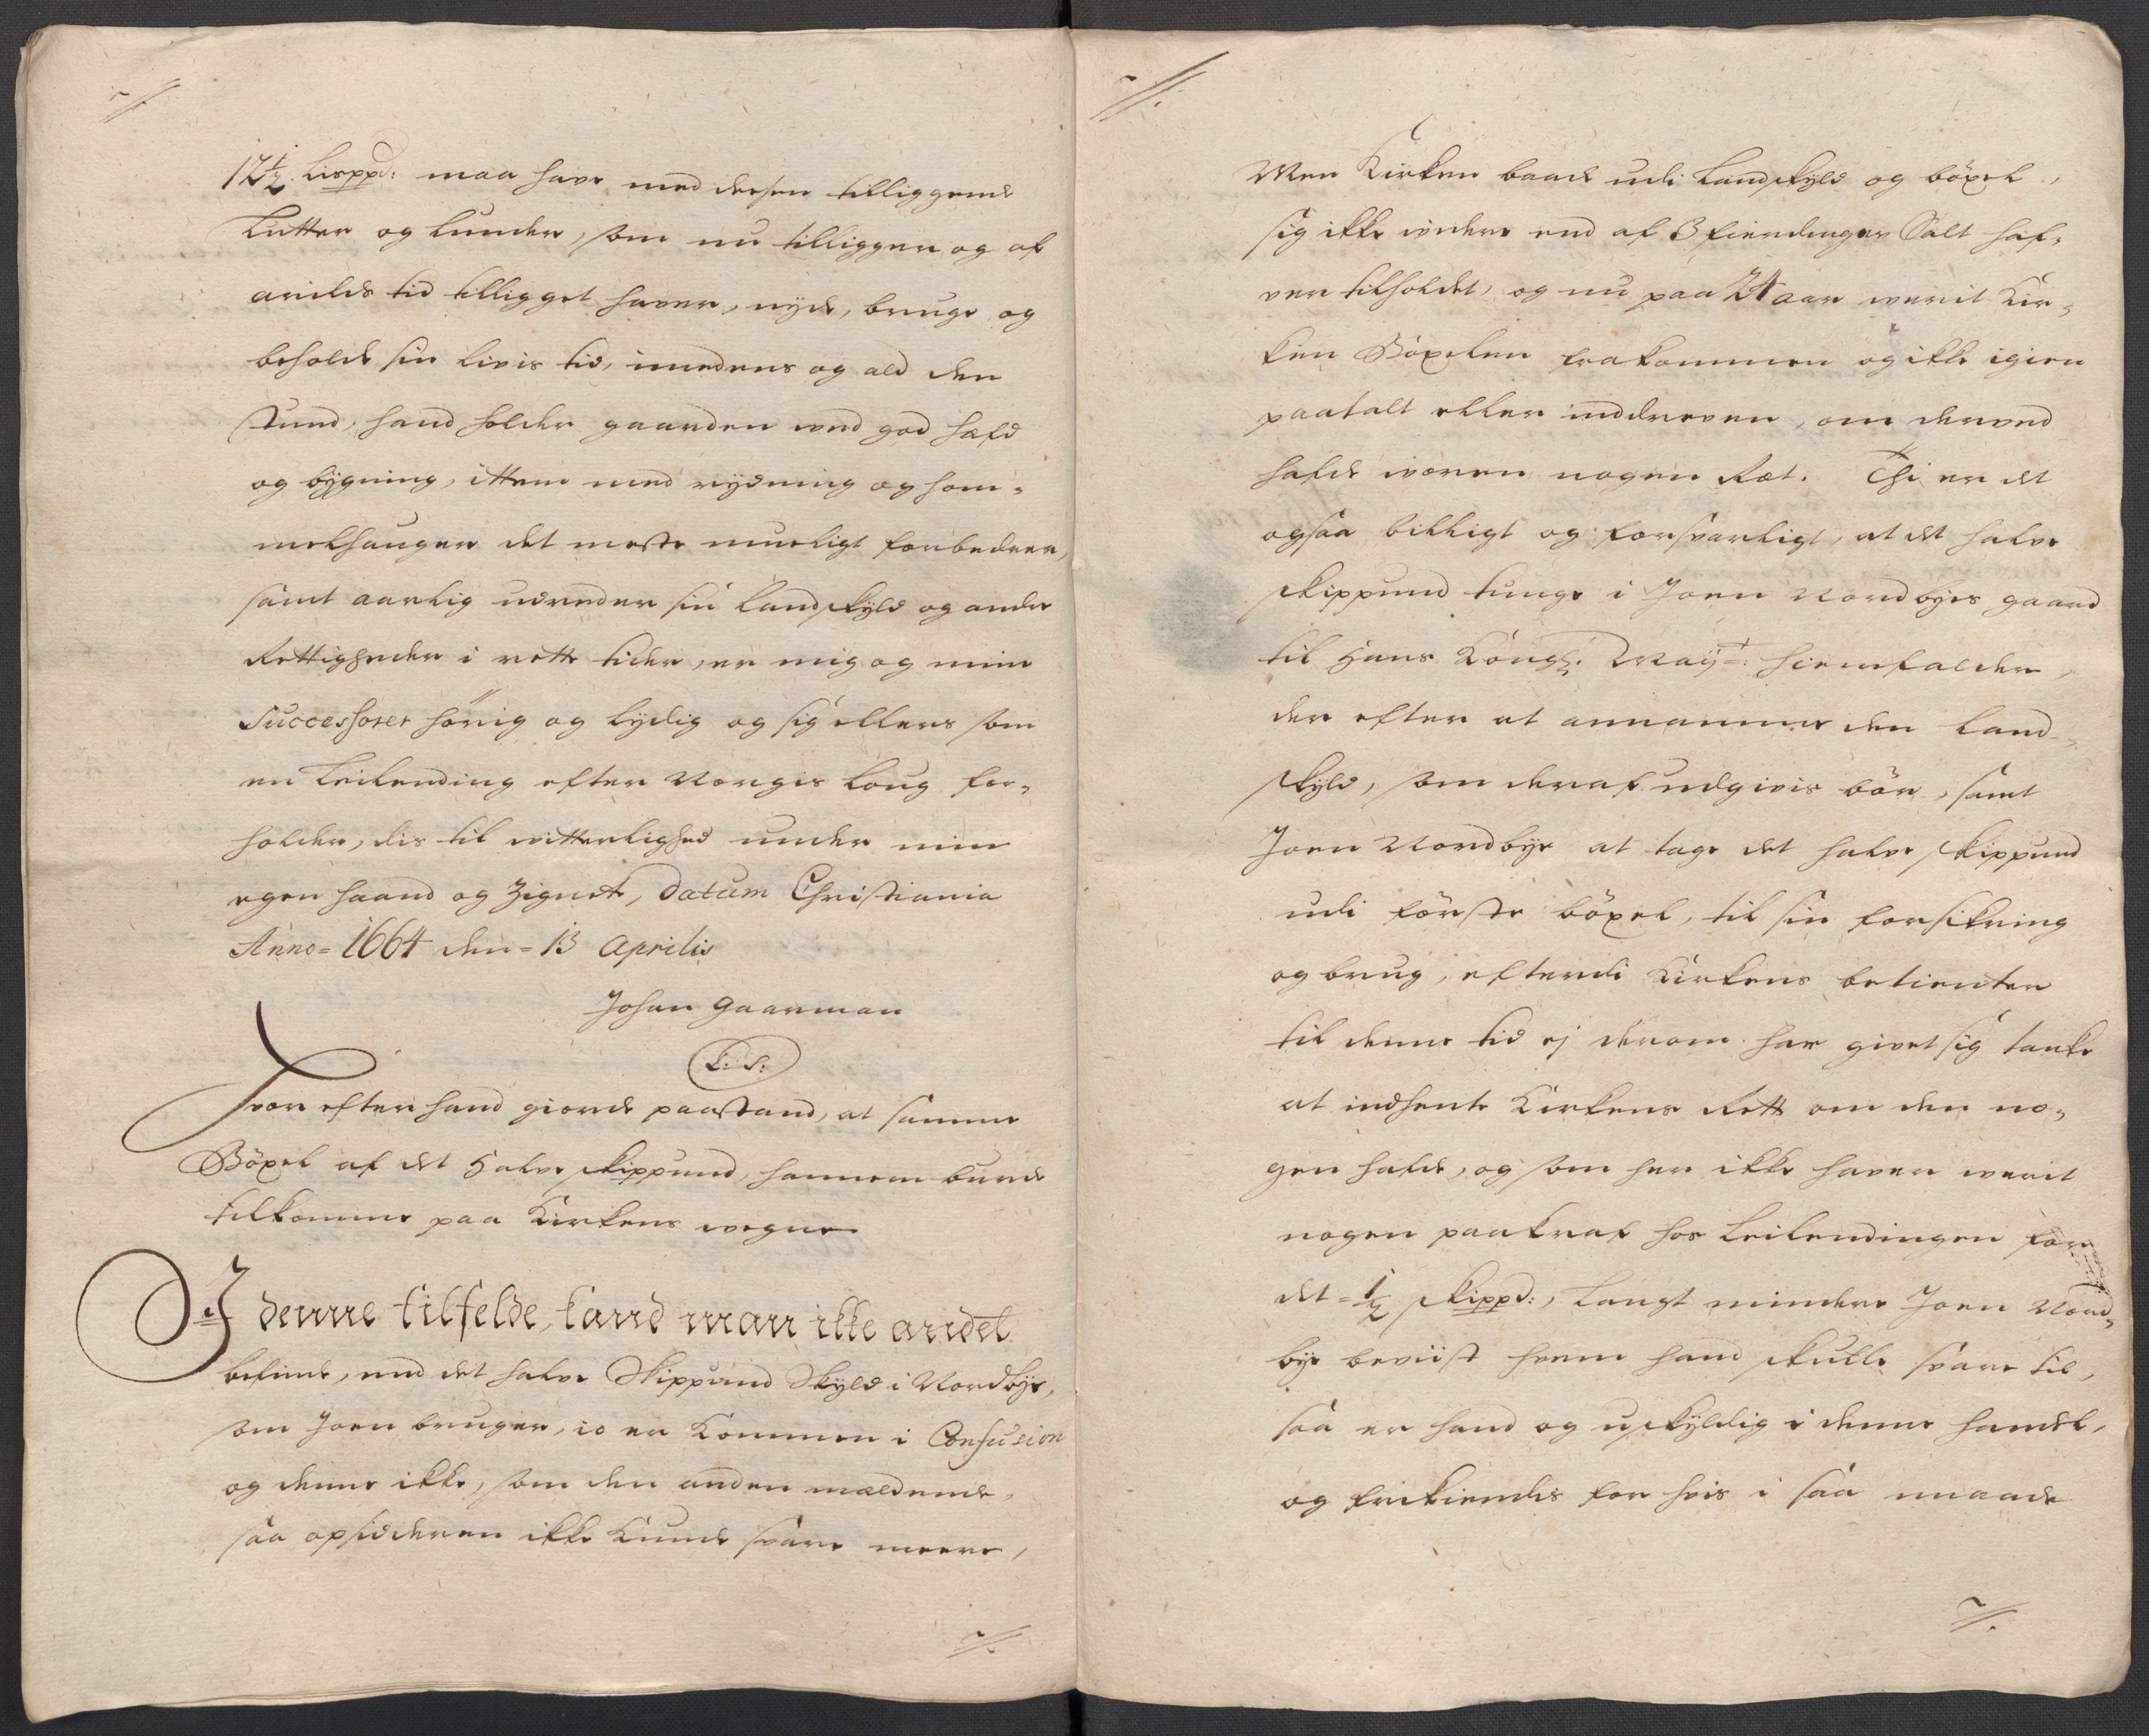 12½ Lisppd: maa have med dessen tilliggende
Lutter og Lunder, som nu tilligger og af
arilds tid tilligget haver, nyde, bruge og
beholde sin livis tid, imedens og ald den
stund, hand holder gaarden ved god hæfd
og bygning, ittem med rydning og hom-
melhauger det meste mueligt forbedrer,
samt aarlig udreder sin Landskyld og andre
Rettigheder i rette tider, er mig og mine
Successorer hörig og lydig og sig ellers som
en Leilending efter Norgis Loug for-
holder, dis til vitterlighed under min
egen haand og Zignet, Datum Christiania
Anno = 1664 den = 13 Aprilis
Johan Gaarman
L: S:
Hvor efter hand giorde paastand, at samme
Böxel af det Halve skippund, hannem burde
tilkomme paa Kirkens vegne
I denne tilfelde, kand man ikke andet
befinde, end det halve Skippund Skyld i Nordbye,
som Joen bruger, jo er kommen i Confusion
og denne ikke, som den anden mældende,
saa opsidderen ikke kunde svare meere,
Men Kirken baade udi Landskyld og böxel,
sig ikke videre end af 3 fierdinger Salt haf-
ver tilholdet, og nu paa 24 aar verit Kir-
ken Böxelen frakommen og ikke igien
paatalt eller inddreven, om derved
hafde voren nogen Ræt. Thi er det
ogsaa billigt og forsvarligt, at det halve
skippund tunge i Joen Nordbyes gaard
til Hans Kongl: May:t: hiemfalder,
der efter at annamme den Land-
skyld, som deraf udgivis bör, samt
Joen Nordbye at tage det halve skippund
udi förste böxel, til sin forsikring
og brug, efterdi Kirkens betienter
til denne tid ej derom har givet sig tanke
at indhente Kirkens Rett om den no-
gen hafde, og som her ikke haver verit
nogen paakraf hos Leilendingen for
det = ½ skippd:, langt mindere Joen Nord-
bye beviist hvem hand skulle svare til,
saa er hand og uskyldig i denne handel,
og frikiendes for hvis i saa maade